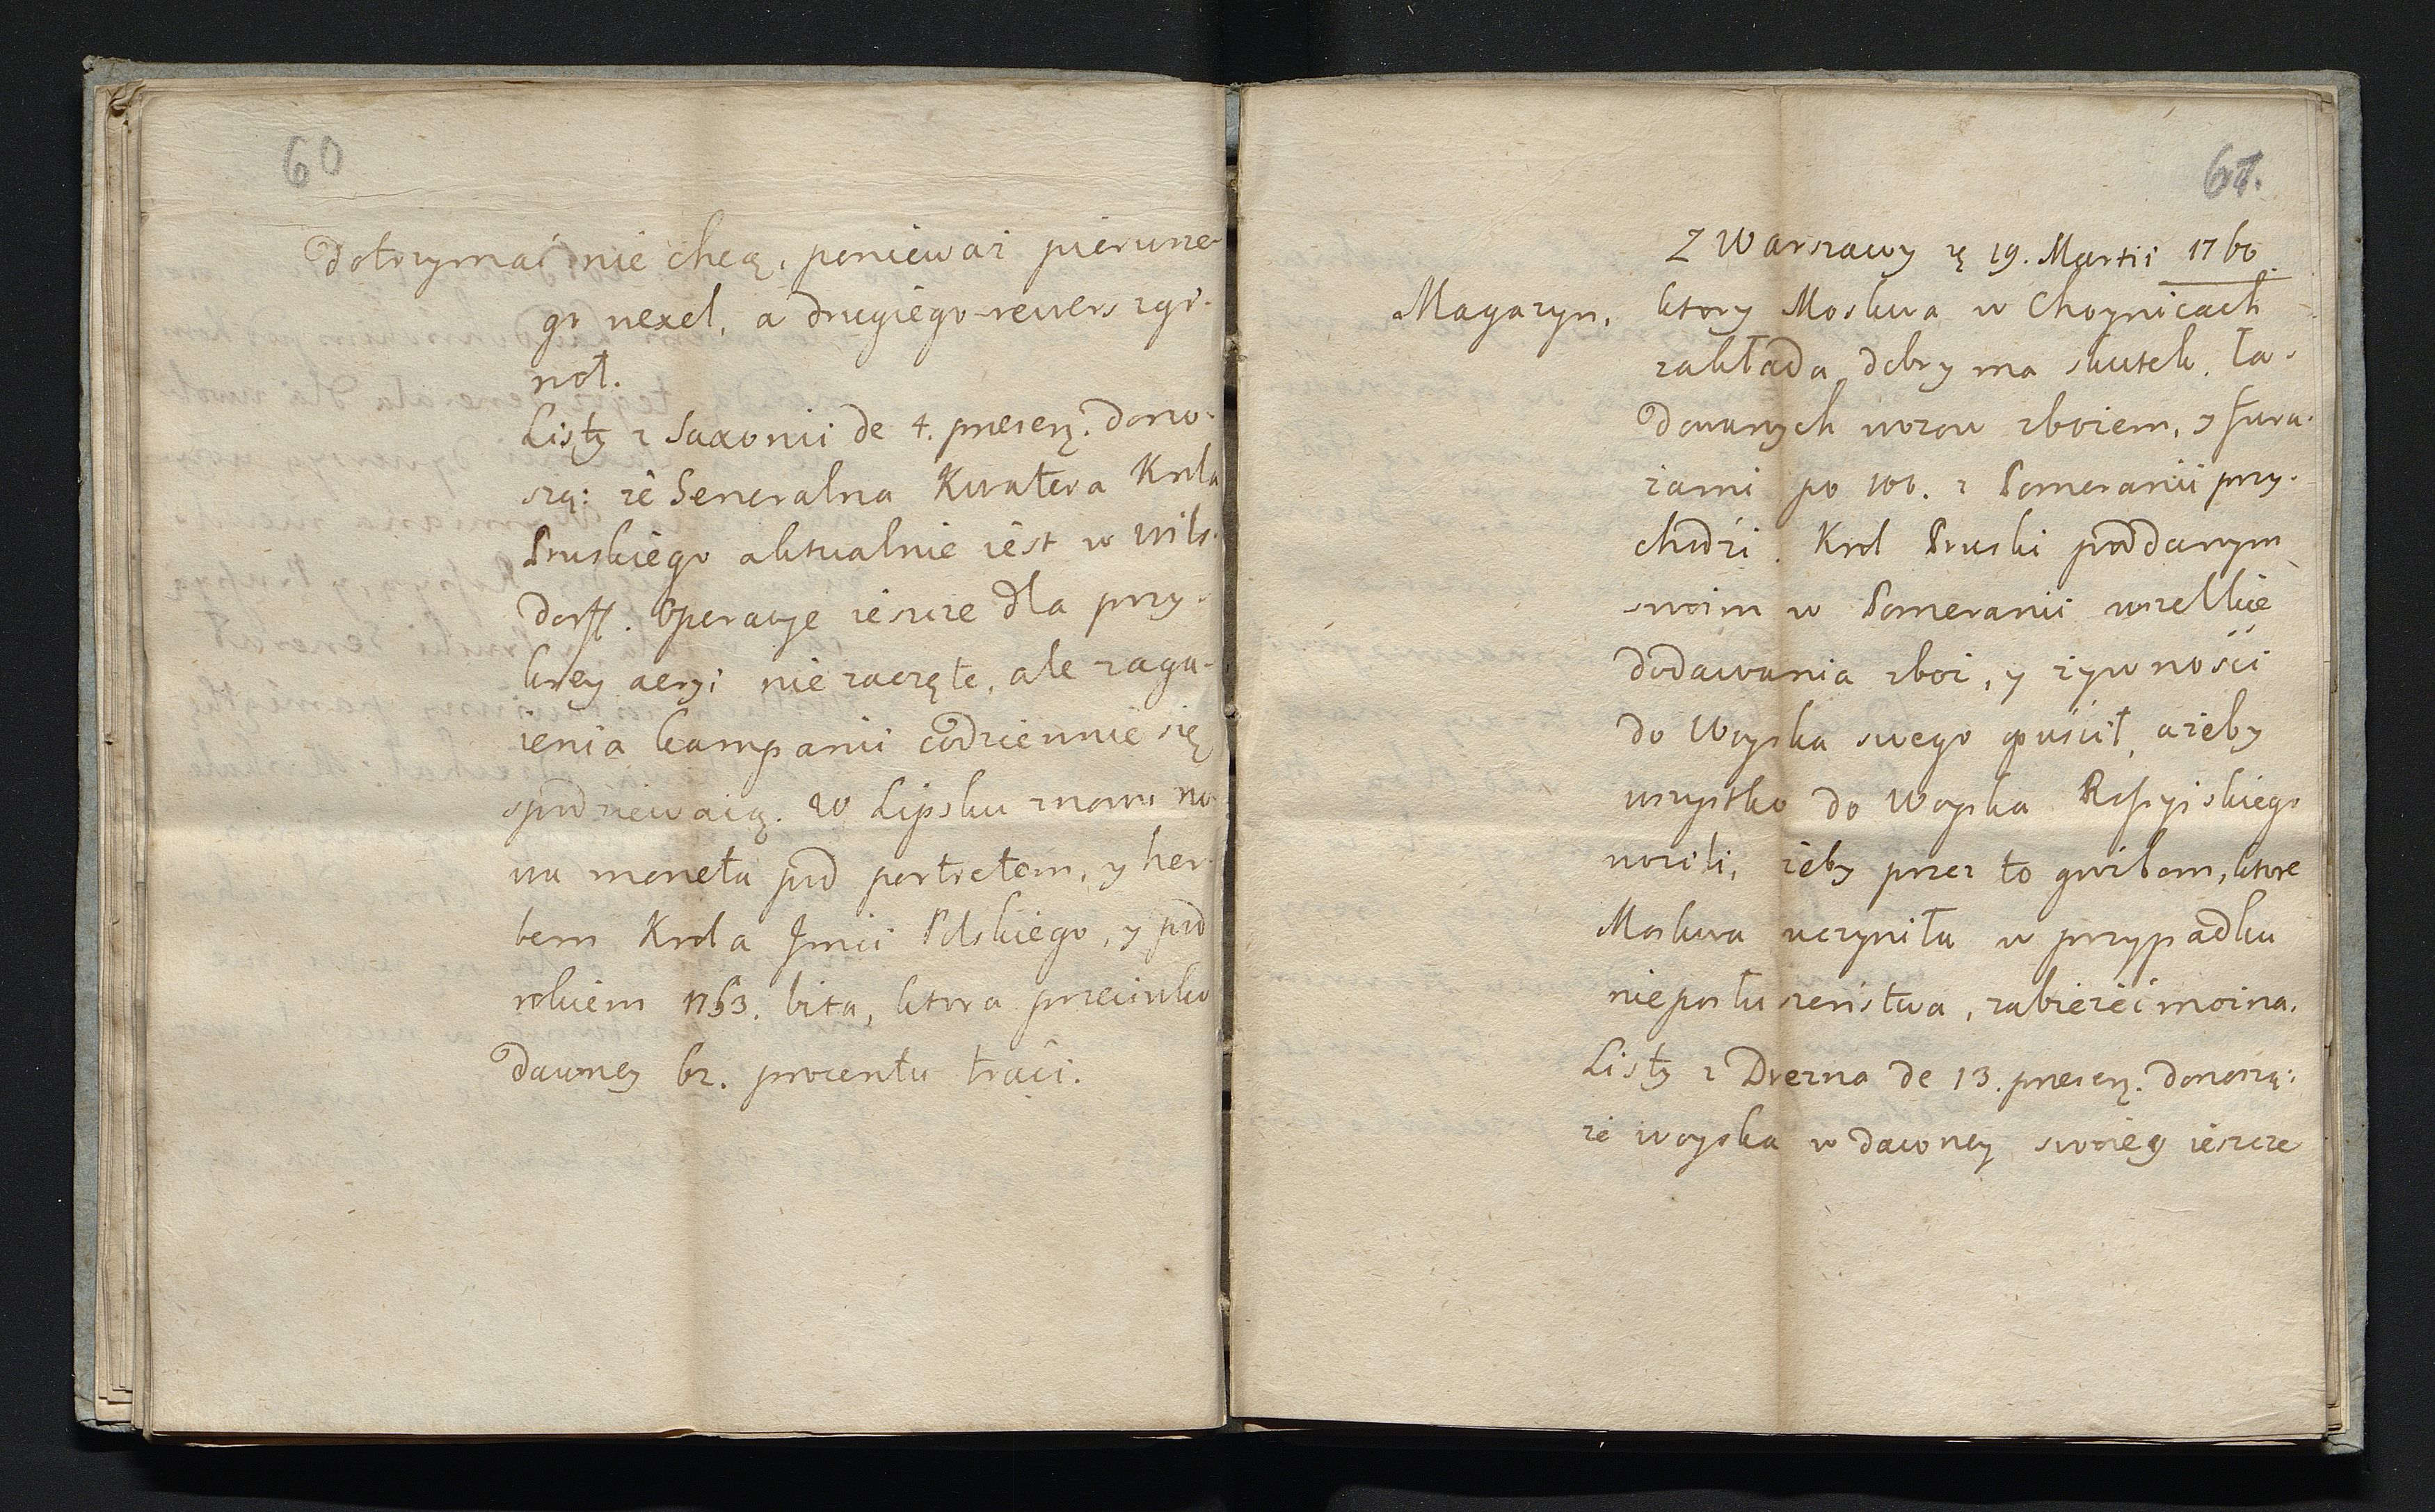 60
Dotrzymać nie chcą, poniewaz pierwsze-
go wexel, a drugiego rewers zgi-
noł.
Listy z Saxonii de 4. presenţ. dono-
szą: że Generalna Kwatera Krola
Pruskiego aktualnie iest w Wils-
dorff. Operacye ieszcze dla przy-
krey aeryi nie zaczęte, ale zaga-
ienia kampanii codziennie się
spodziewaią. W Lipsku znowu no-
wa moneta pod portretem, y her-
bem Krola Jmci Polskiego, y pod
rokiem 1753. bita, ktora przeciwko
dawney 62. procentu traci.
61.
Z Warszawy ą 19. Martii 1760
Magazyn, ktory Moskwa w Choynicach
zakłada dobry ma skutek. Ła-
dowanych wozow zbożem, y fura-
żami po 100. z Pomeranii przy-
chodzi. Krol Pruski poddanym
swoim w Pomeranii wszelkie
dodawania zboż, y żywności
do Woyska swego opuścił, ażeby
wszystko do Woyska Rossyiskiego
wozili, żeby przez to , ktore
Moskwa uczyniła w przypadku
nieposłuszeństwa, zabieżeć można.
Listy z Drezna de 13. presenţ. donoszą:
że woyska w dawney swoiey ieszcze